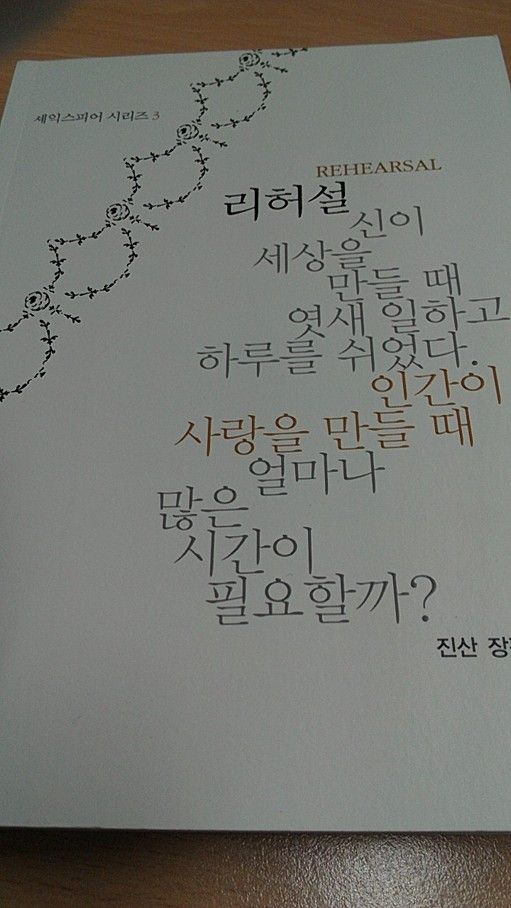 세익스피어 시리즈 3
REHEARSAL
리허설
신이
세상을
만들 때
엿새 일하고
하루를 쉬었다.
인간이
사랑을 만들 때
얼마나
많은
시간이
필요할까?
진산